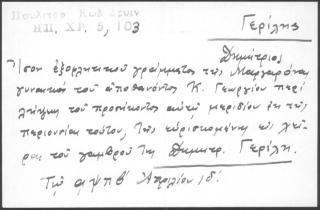 Πουλίτσα Κωδ
ΗΠ. ΧΡ. 5, 103
Γερίλης
Δημήτριος
Ἴσον ἐξοφλητικοῦ γράμματος τῆς Μαργαρώνας
γυναικὸς τοῦ ἀποθανόντος Κ. Γεωργίου περὶ
λήψεως τοῦ προσήκοντος αὐτῇ μεριδίου ἐκ τῆς
περιουσίας τούτου, τῆς εὑρισκομένης εἰς χεῖ-
ρας τοῦ γαμβροῦ της Δημητρ. Γερίλη.
Τῷ αψπβʹ Ἀπριλίου ιδʹ.